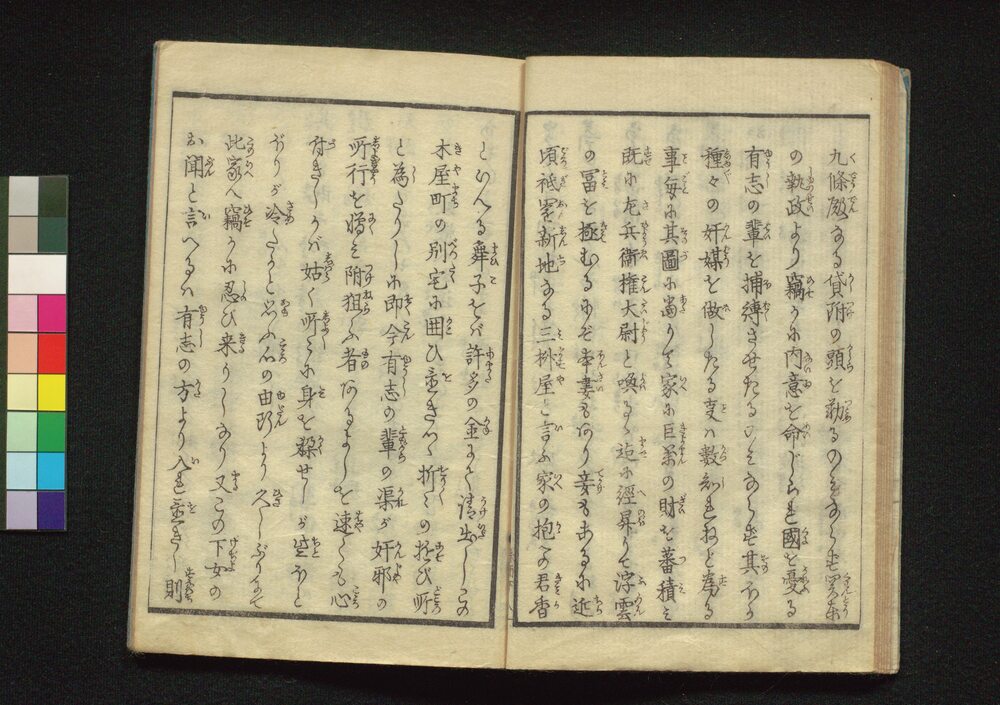 九條殿なる貸附の頭を勤るのみならず関東
の執政より竊かに内意を命じられ國を憂る
有志の輩を捕縛させたるのみならず其ほか
種々の奸媒を做したる事は数知れねど為る
事毎に其圖に當りて家に巨萬の財を蓄積み
既に左兵衛権大尉と喚るゝ迄に經昇りて浮雲
の冨を極むるにぞ本妻もあり妾もあるに近
頃祗園新地なる三桝屋と言ふ家の抱への君香
といへる舞子をば許多の金にて請出しこの
木屋町の別宅に囲ひ置きつゝ折々の遊び所
と為たりしに即今有志の輩の渠が奸邪の
所行を憎み附狙ふ者あるよしを速くも心
付きしかば姑く所々に身を潜せしが遊ほと
ぼりが冷たりと思ふ心の由断より久しぶりにて
此家へ竊かに忍び来りしなり又この下女の
お聞と言へるは有志の方より入れ置きし則